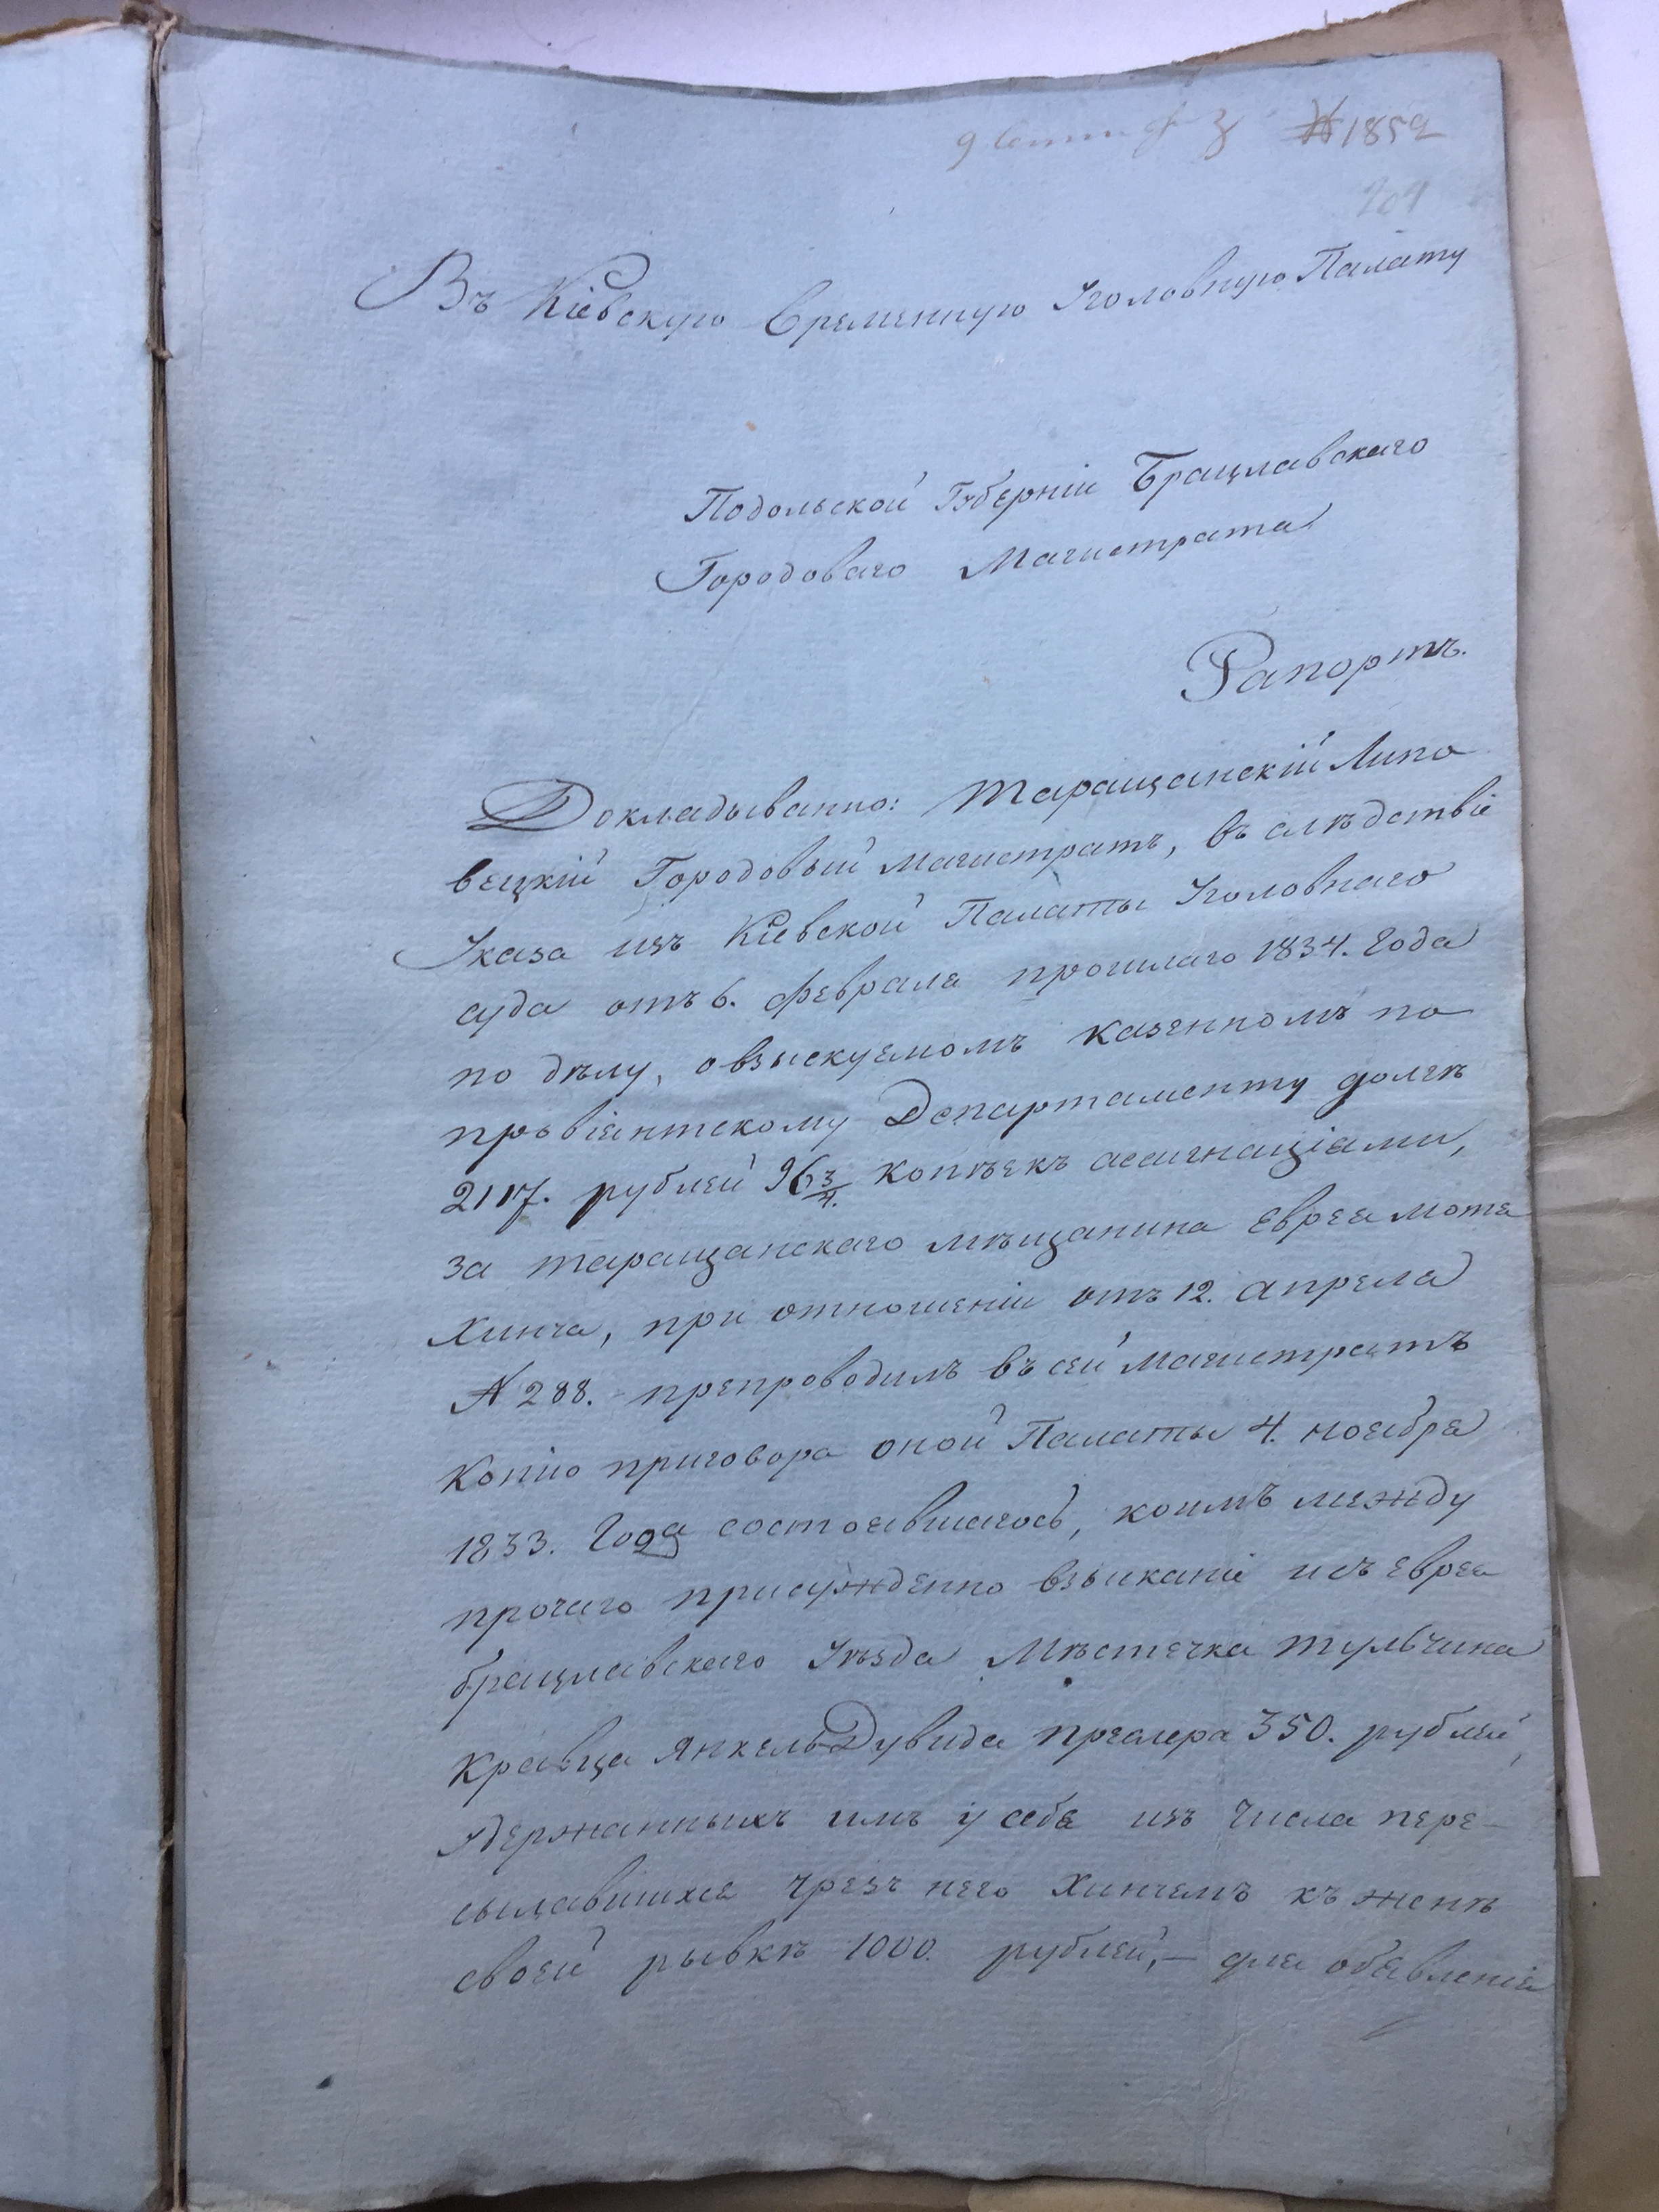 № 1852
Въ Кіевскую Временную Уголовную Палату
Подольской Губерніи Брацлавскаго
Городоваго Магистрата
Рапортъ.
Докладыванно: Таращанскій Липо
вецкій Городовый Магистратъ, въ слѣдствіе
Указа изъ Кіевской Палаты Уголовнаго
суда отъ 6. февраля прошлаго 1834. года
по дѣлу, о взыскуемомъ казенномъ по
провіянтскому Департаменту долгѣ
2117. рублей 96 3/4. копѣекъ ассигнаціями,
за таращанскаго мѣщанина Еврея Мотя
Хинча, при отношеніи отъ 12. апреля
№ 288. препроводилъ въ сей Магистратъ
Копію приговора оной Палаты 4. ноября
1833. года состоявшагось, коимъ между
прочаго присужденно взыканіе изъ еврея
брацлавскаго Уѣзда Мѣстечка Тульчина
Кравца Янкель Дувида 350. рублей,
удержанныхъ имъ у себя изъ числа пере-
сылавшихся чрезъ него Хинчемъ къ женѣ
своей рывкѣ 1000. рублей, — для обявленія